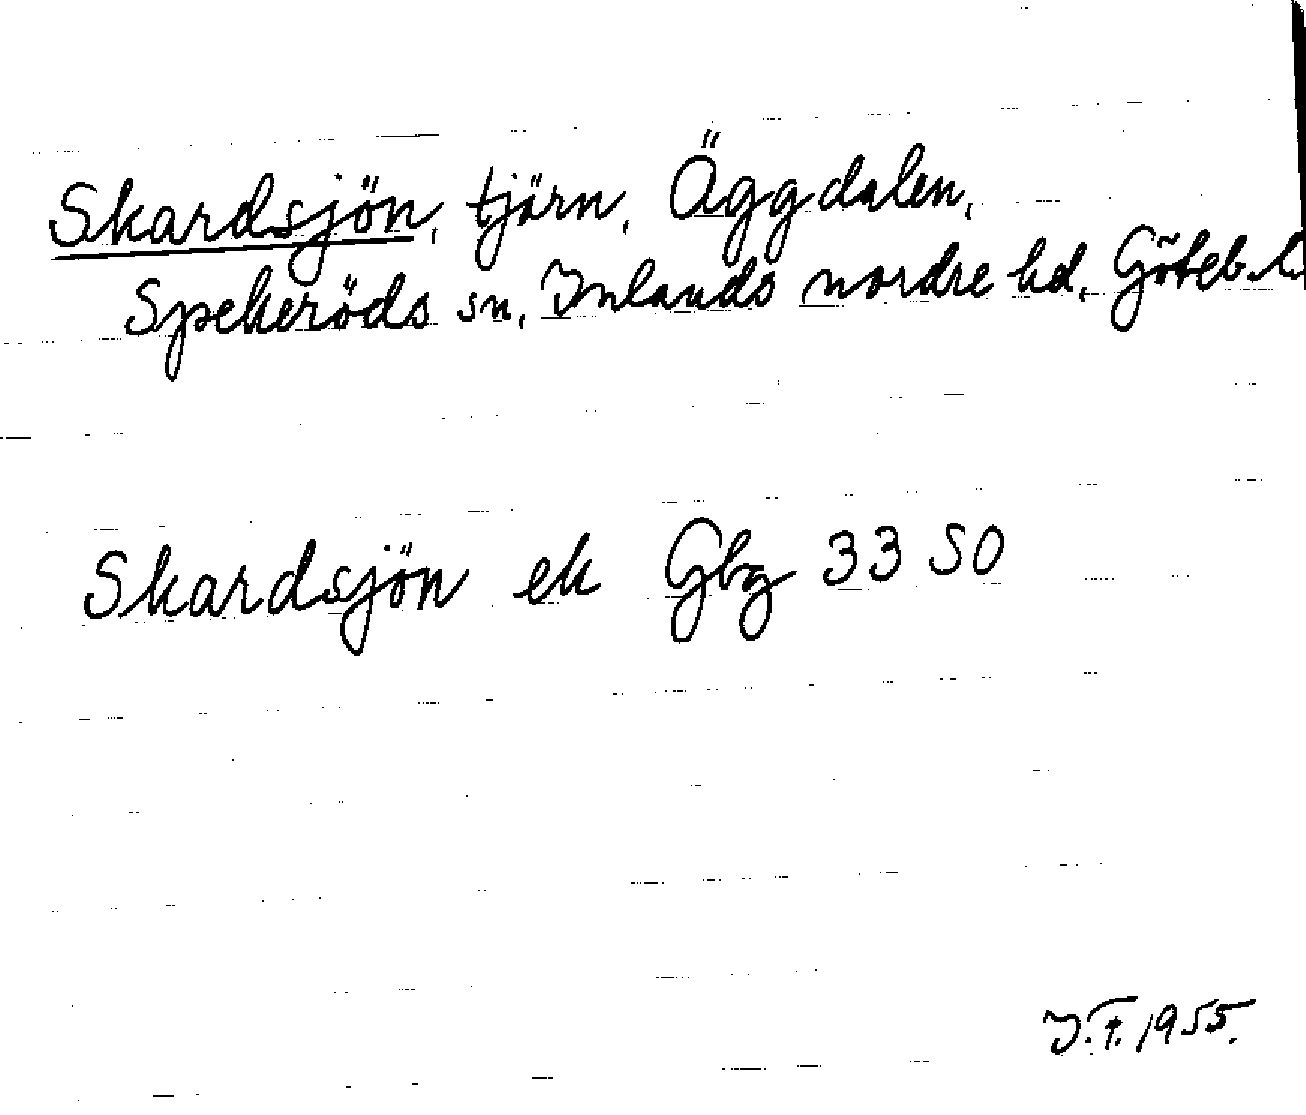 Skardsjön, tjärn, Äggdalen,
Spekeröds sn, Inlands nordre hd, Göteb. l.
Skardsjön ek Gbg 33 SO
I.F. 1955.